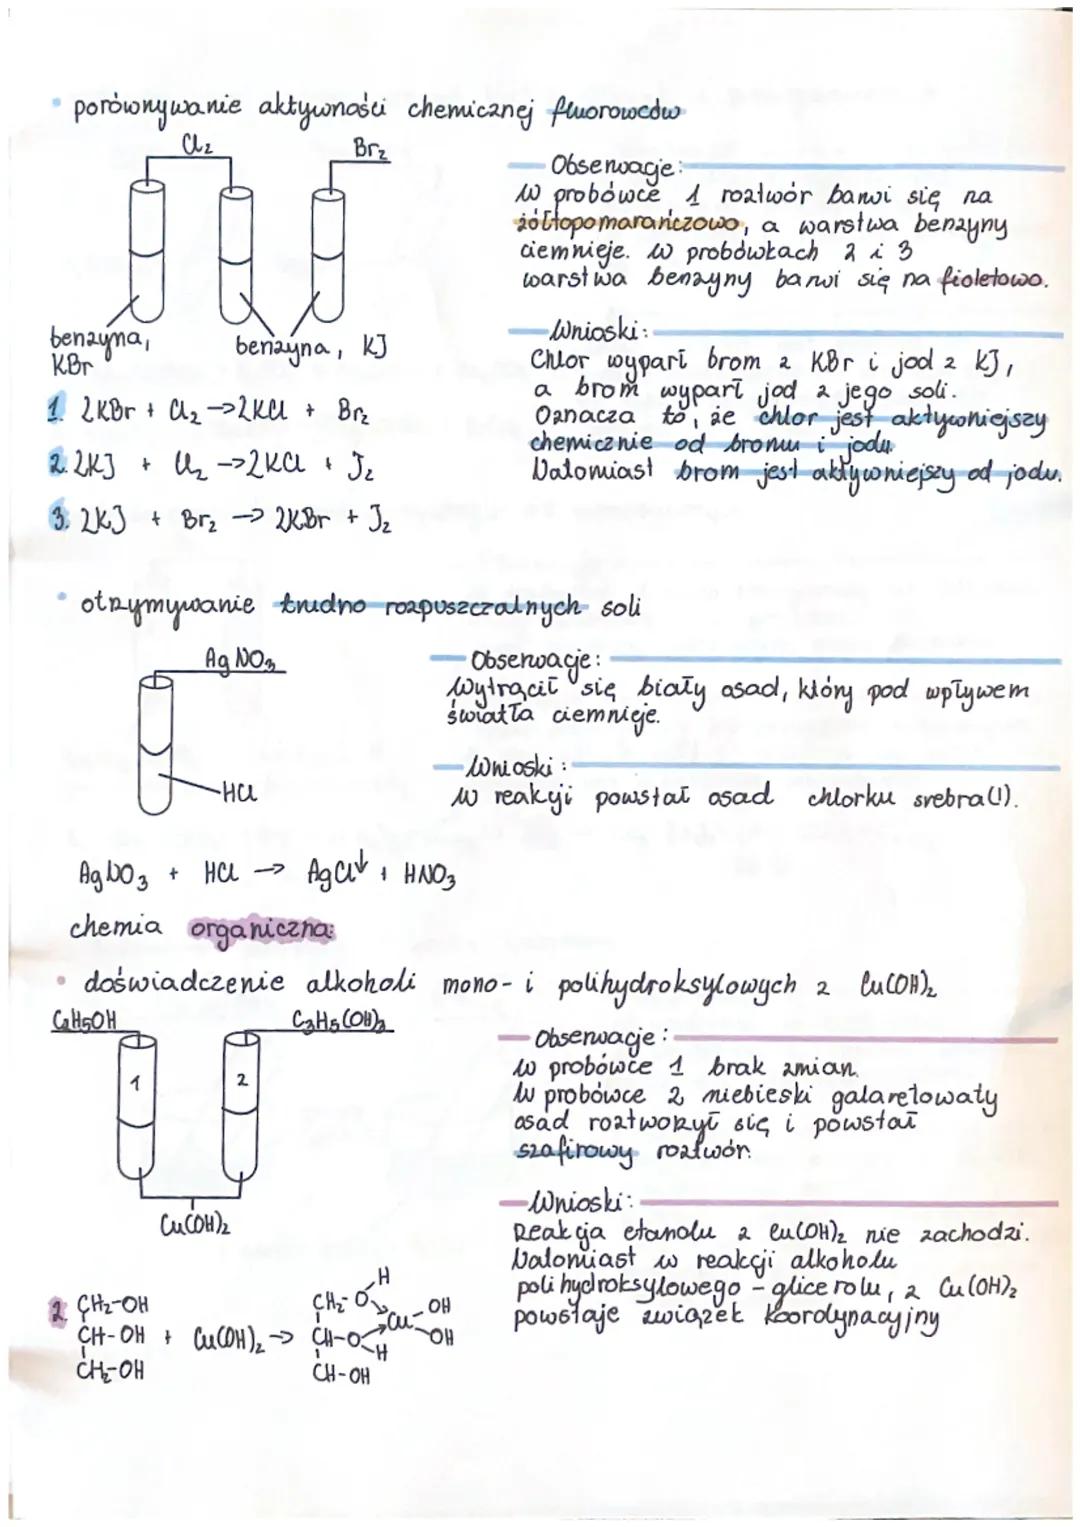 • porównywanie aktywności chemicznej fluorowców
Cl₂
Br₂
benzyna,
KBr
benzyna, KJ
1. 2KBr + Cl₂ → 2KCl + Br₂
2. 2KJ + Cl₂ → 2KCl + J₂
3. 2KJ + Br₂ → 2KBr + J₂
Obserwacje:
W probówce 1 roztwór barwi się na
żółtopomarańczowo, a warstwa benzyny
ciemnieje. W probówkach 2 i 3
warstwa benzyny barwi się na fioletowo.
Wnioski:
Chlor wyparł brom z KBr i jod z KJ,
a brom wyparł jod z jego soli.
Oznacza to, że chlor jest aktywniejszy
chemicznie od bromu i jodu.
Natomiast brom jest aktywniejszy od jodu.
• otrzymywanie trudno rozpuszczalnych soli
AgNO₃
HCl
Obserwacje:
Wytrącił się biały osad, który pod wpływem
światła ciemnieje.
Wnioski:
W reakcji powstał osad chlorku srebra(I).
AgNO₃ + HCl → AgCl↓ + HNO₃
chemia organiczna:
• doświadczenie alkoholi mono- i polihydroksylowych z Cu(OH)₂
C₂H₅OH
C₃H₅(OH)₃
1
2
Cu(OH)₂
Obserwacje:
W probówce 1 brak zmian.
W probówce 2 niebieski galaretowaty
osad roztworzył się i powstał
szafirowy roztwór.
Wnioski:
Reakcja etanolu z Cu(OH)₂ nie zachodzi.
Natomiast w reakcji alkoholu
polihydroksylowego - glicerolu, z Cu(OH)₂
powstaje związek koordynacyjny
H
2. CH₂-OH CH₂-O Cu -OH
CH-OH + Cu(OH)₂ → CH-O -H OH
CH₂-OH CH-OH